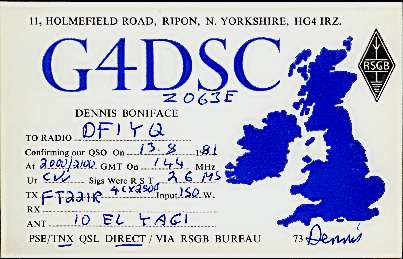 11, HOLMEFIELD ROAD, RIPON, N. YORKSHIRE, HG4 1RZ.
G4DSC
RSGB
ZO63E
DENNIS BONIFACE
TO RADIO DF1YQ
Confirming our QSO On 13.8 1981
At 2000/2100 GMT On 144 MHz
Ur CW Sigs Were R S T 26 MS
TX FT221R 4CX250B Input 150 W.
RX
ANT 10 EL YAGI
PSE/TNX QSL DIRECT / VIA RSGB BUREAU 73 Dennis